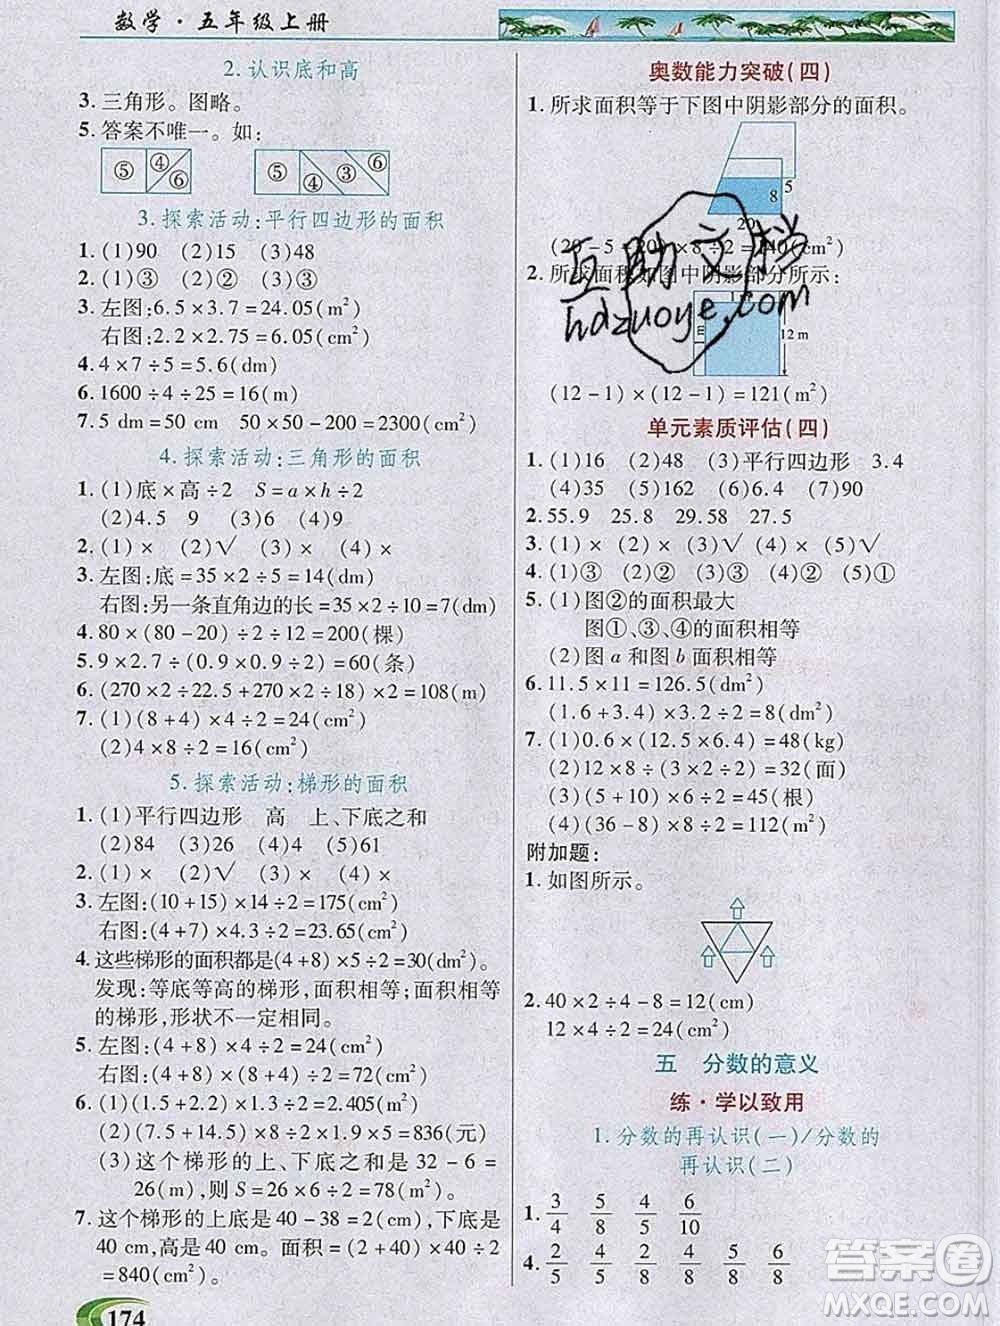 数学·五年级上册
2. 认识底和高
3. 三角形。图略。
5. 答案不唯一。如:
⑤ ④ ⑥ ⑤ ④ ③ ⑥
3. 探索活动:平行四边形的面积
1. (1)90 (2)15 (3)48
2. (1)③ (2)② (3)③
3. 左图:6.5×3.7=24.05(m²)
右图:2.2×2.75=6.05(m²)
4. 4×7÷5=5.6(dm)
6. 1600÷4÷25=16(m)
7. 5 dm=50 cm 50×50-200=2300(cm²)
4. 探索活动:三角形的面积
1. (1)底×高÷2 S=a×h÷2
(2)4.5 9 (3)6 (4)6
2. (1)× (2)√ (3)× (4)×
3. 左图:底=35×2÷5=14(dm)
右图:另一条直角边的长=35×2÷10=7(dm)
4. 80×(80-20)÷2÷12=200(棵)
5. 9×2÷(0.9×0.9÷2)=60(条)
6. (270×2÷22.5+270×2÷18)×2=108(m)
7. (1)(8+4)×4÷2=24(cm²)
(2)4×8÷2=16(cm²)
5. 探索活动:梯形的面积
1. (1)平行四边形 高 上、下底之和
(2)84 (3)26 (4)4 (5)61
2. (1)× (2)√ (3)× (4)×
3. 左图:(10+15)×14÷2=175(cm²)
右图:(4+7)×4.3÷2=23.65(cm²)
4. 这些梯形的面积都是(4+8)×5÷2=30(dm²)。
发现:等底等高的梯形,面积相等;面积相等
的梯形,形状不一定相同。
5. 左图:(4+8)×4÷2=24(cm²)
右图:(4+8)×12÷2=72(cm²)
6. (1)(1.5+2.5)×1.3÷2=2.6(m²)
(2)(7.5+14.5)×1.9÷2×8×5=836(元)
(3)这个梯形的上、下底之和是32-6=
26(m),则S=26×6÷2=78(m²)。
7. 这个梯形的上底是40-38=2(cm),下底是
40 cm,高是40 cm。面积=(2+40)×40÷2
=840(cm²)。
174
奥数能力突破(四)
1. 所求面积等于下图中阴影部分的面积。
8 5
20
(20-5+20)×8÷2=140(cm²)
2. 所求面积如图中阴影部分所示:
12 m
(12-1)×(12-1)=121(m²)
单元素质评估(四)
1. (1)16 (2)48 (3)平行四边形 3.4
(4)35 (5)162 (6)6.4 (7)90
2. 55.9 25.8 29.58 27.5
3. (1)× (2)× (3)√ (4)× (5)√
4. (1)③ (2)② (3)② (4)③ (5)①
5. (1)图②的面积最大
图①、③、④的面积相等
(2)图a和图b面积相等
6. 11.5×11=126.5(dm²)
(1.6+3.4)×3.2÷2=8(dm²)
7. (1)0.6×(12.5×6.4)=48(kg)
(2)12×8÷(2×1.5÷2)=32(面)
(3)(5+10)×6÷2=45(根)
(4)(36-8)×8÷2=112(m²)
附加题:
1. 如图所示。
2. 40×2÷4-8=12(cm)
12×4÷2=24(cm²)
五 分数的意义
练·学以致用
1. 分数的再认识(一)/分数的
再认识(二)
1. 3/4 5/8 4/5 6/10
4. 2/5 4/5 2/8 5/8
互助文档
hdzuoye.com
答案圈
MXQE.COM